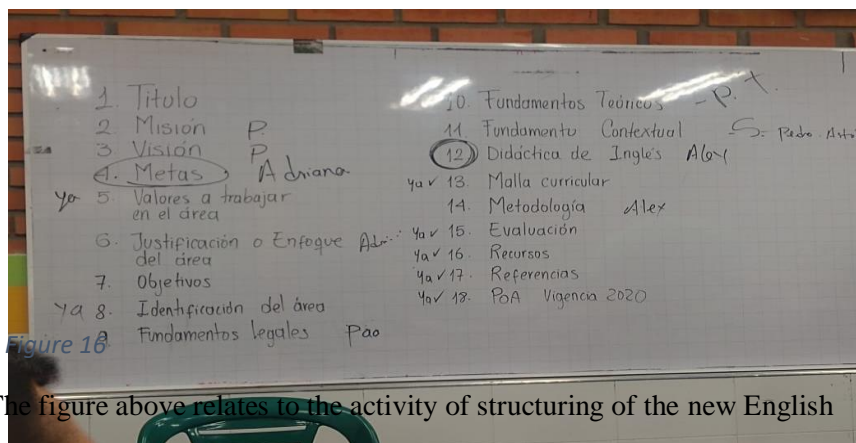 1. Titulo
2 Misión P.
3 Visión P
4. Metas Adriana
ya 5. Valores a trabajar
en el área
6. Justificación o Enfoque Adri
del área
7. Objetivos
ya 8. Identificación del área
9. Fundamentos legales Pao
10. Fundamentos Teóricos - P.
11. Fundamento Contextual - S. Pedro
12 Didáctica de Inglés Alex
ya ✓ 13. Malla curricular
14. Metodología Alex
ya ✓ 15. Evaluación
ya ✓ 16. Recursos
ya ✓ 17. Referencias
ya ✓ 18. POA Vigencia 2020
Figure 16
The figure above relates to the activity of structuring of the new English